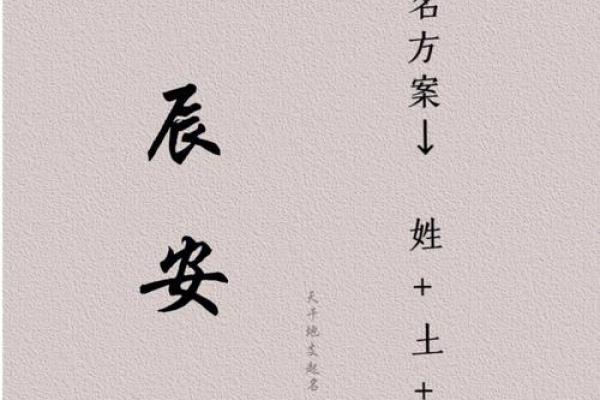 名方案↓ 姓+土+
天干地支起名
辰安